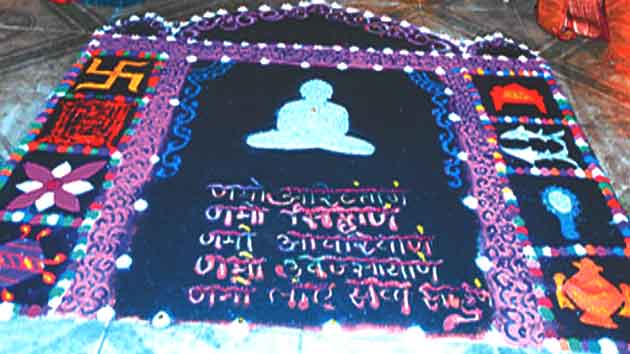 णमो अरिहंताणं
णमो सिद्धाणं
णमो आयरियाणं
णमो उवज्झायाणं
णमो लोए सव्व साहूणं